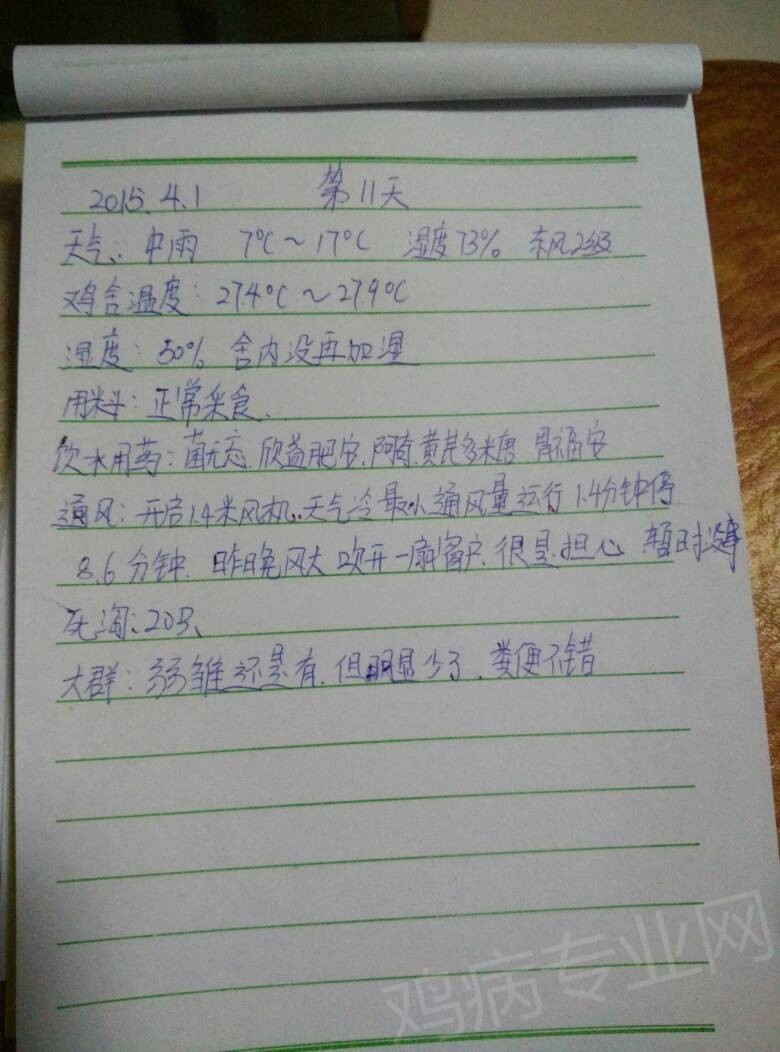 2015.4.1 第11天
天气: 中雨 7℃～17℃ 湿度73% 东风2级
鸡舍温度: 27.4℃～27.9℃
湿度: 50% 舍内没再加湿
用料: 正常采食.
饮水用药: 菌无忘. 欣益肥安. 阿奇. 黄芪多糖 肾福安
通风: 开启1.4米风机. 天气冷最小通风量运行1.4分钟停
8.6分钟. 昨晚风大吹开一扇窗户. 很是担心 暂时没事
死淘: 20只.
大群: 弱雏还是有. 但明显少了. 粪便不错
鸡病专业网